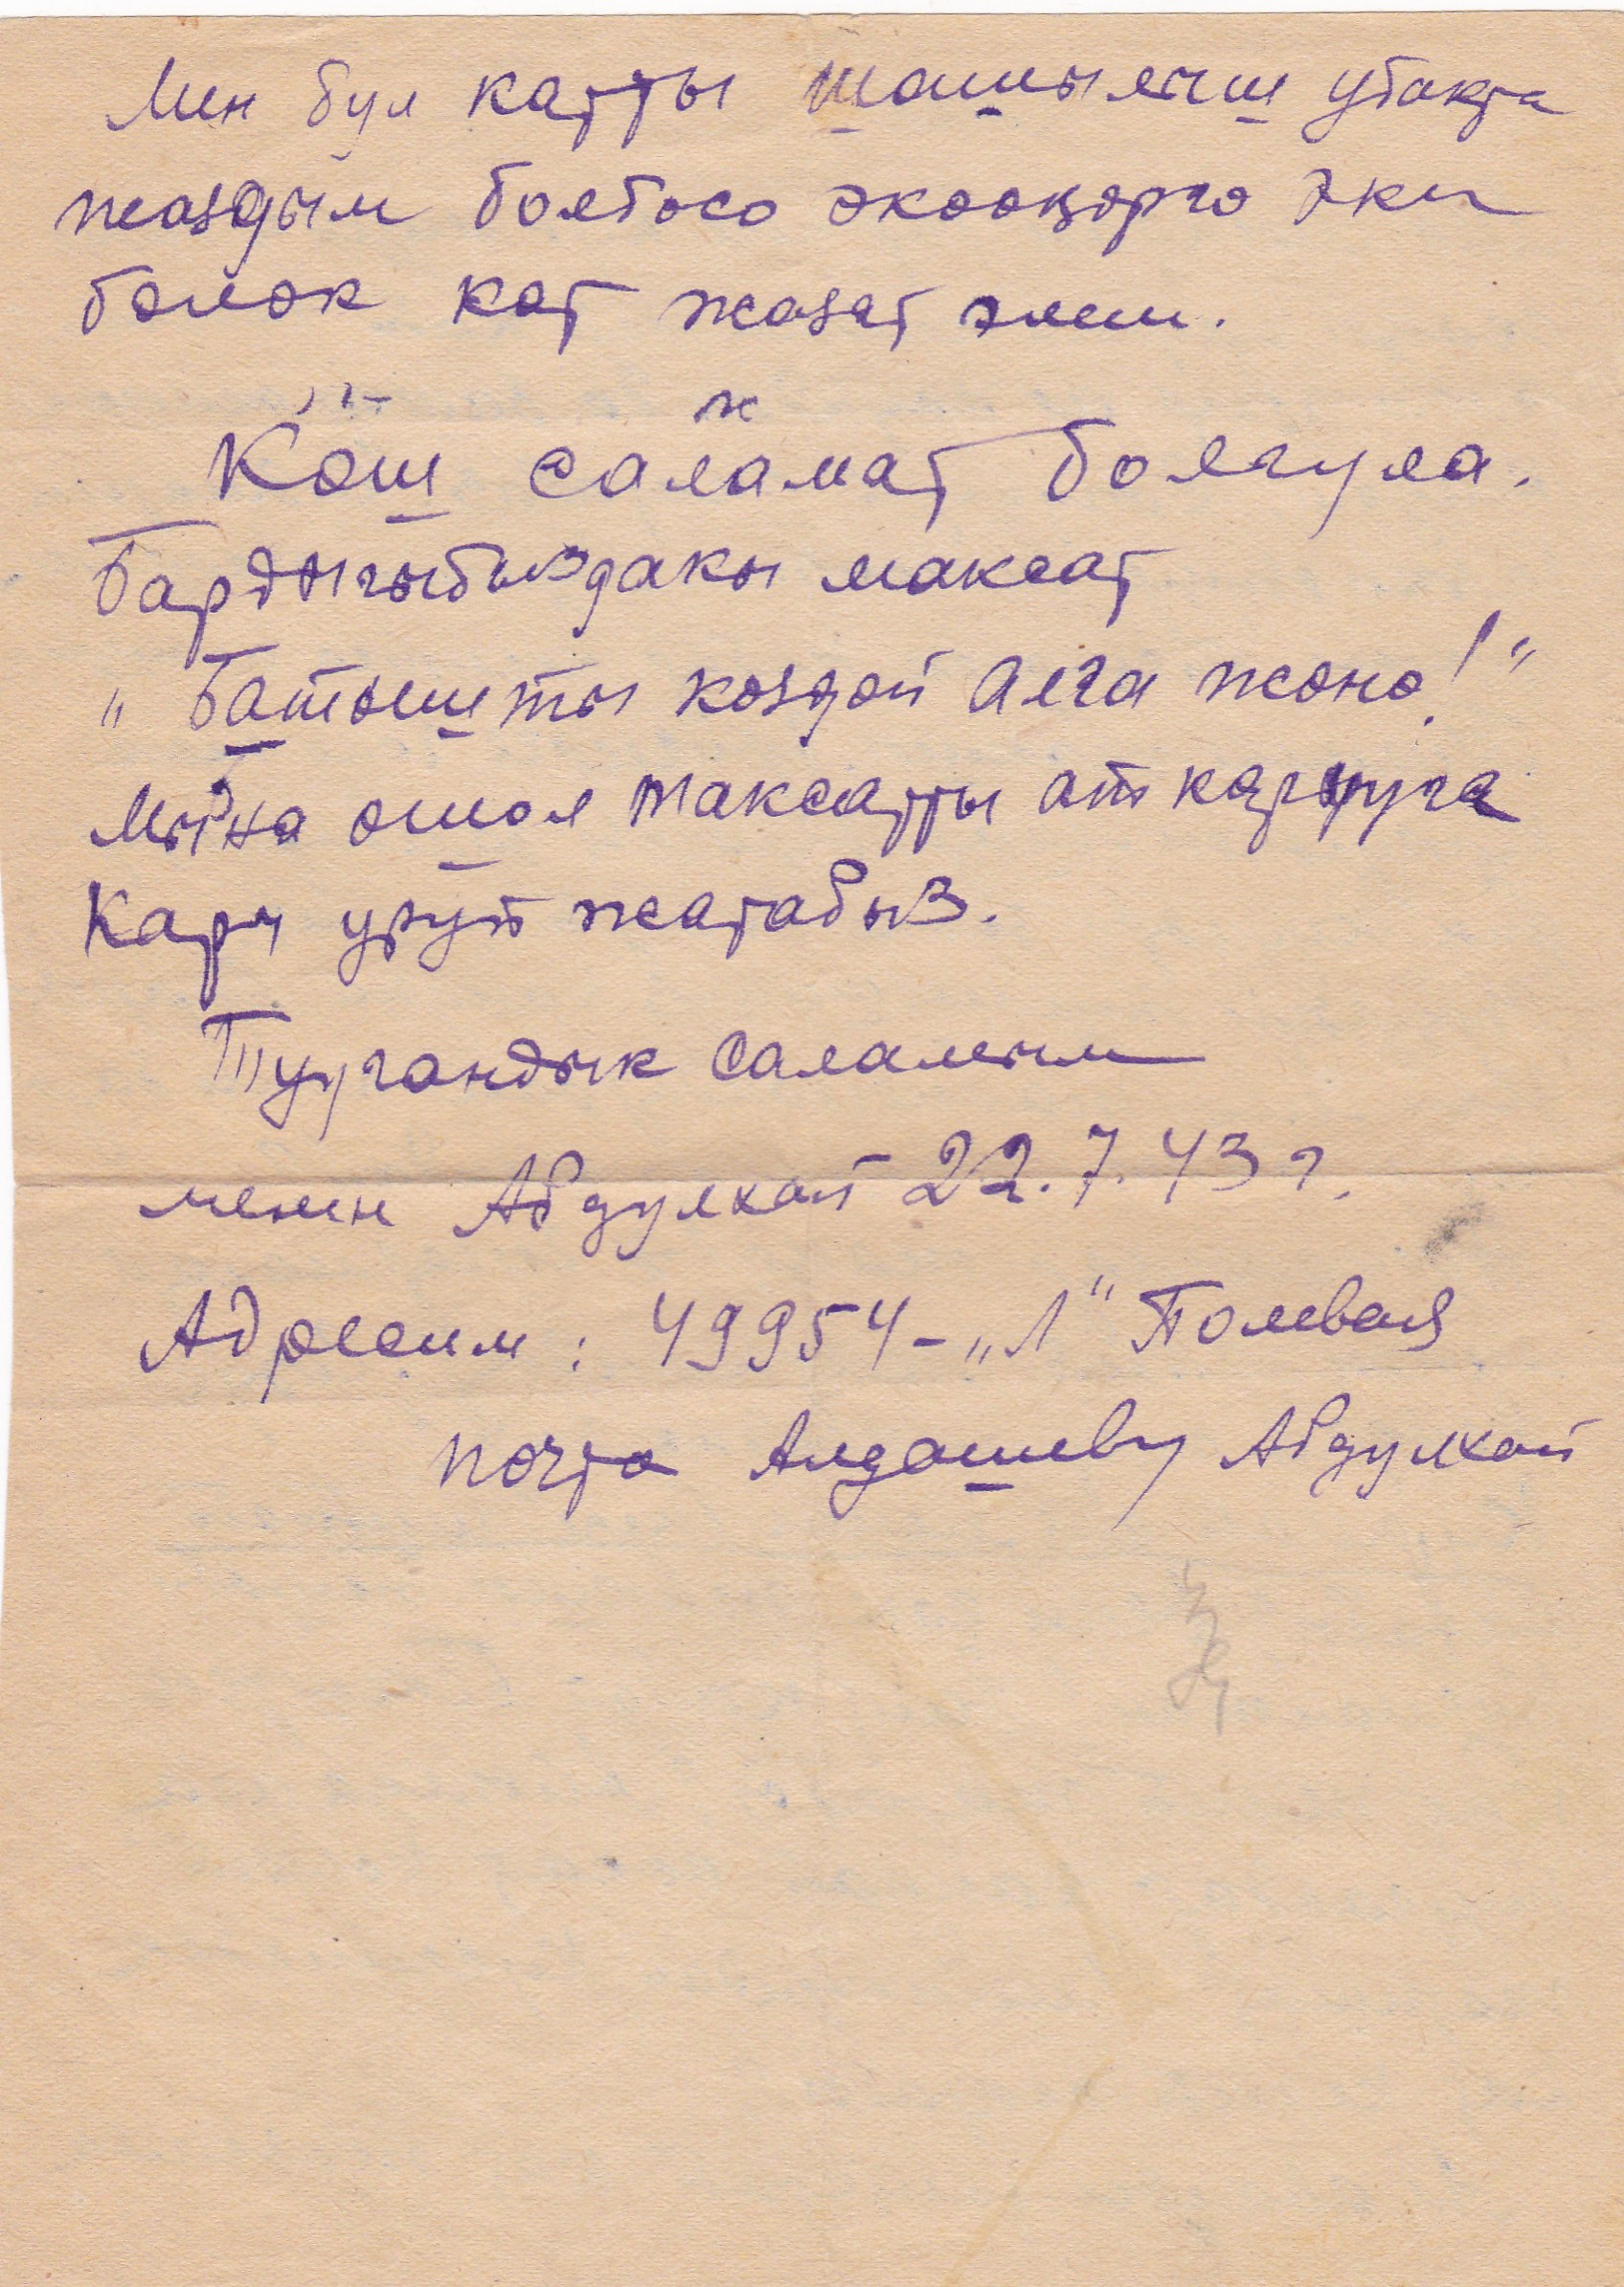 Мен бул катты шашылыш убакта
жаздым болбосо экөөңөргө эки
бөлөк кат жазат элем.
Көш саламат болгула.
Бардыгыбыздакы максат
„Батышты көздөй алга жөнө!“
Мына ошол максатты аткарууга
кам уруп жатабыз.
Туугандык саламым
менен Абдулхай 22.7.43 г.
Адресим: 49954-„Л“ Полевая
почта Алдашеву Абдулхай